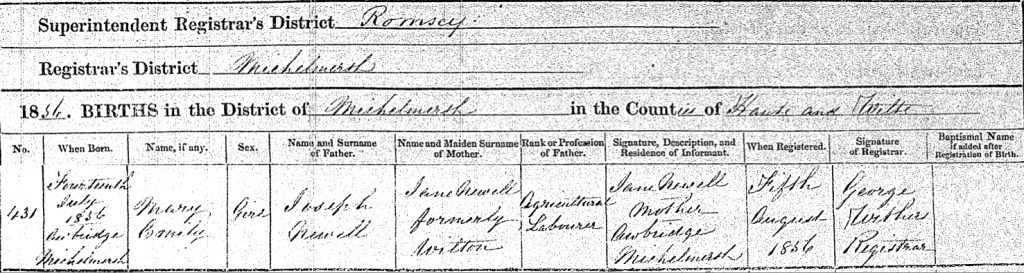 Superintendent Registrar's District Romsey.
Registrar's District Michelmersh
1856. BIRTHS in the District of Michelmersh in the Counties of Hants and Wilts
No. When Born. Name, if any. Sex. Name and Surname of Father. Name and Maiden Surname of Mother. Rank or Profession of Father. Signature, Description, and Residence of Informant. When Registered. Signature of Registrar. Baptismal Name if added after Registration of Birth.
431 Fourteenth July 1856 Awbridge Michelmersh Mary Emily Girl Joseph Newell Jane Newell formerly Witton Agricultural Labourer Jane Newell Mother Awbridge Michelmersh Fifth August 1856 George Wither Registrar